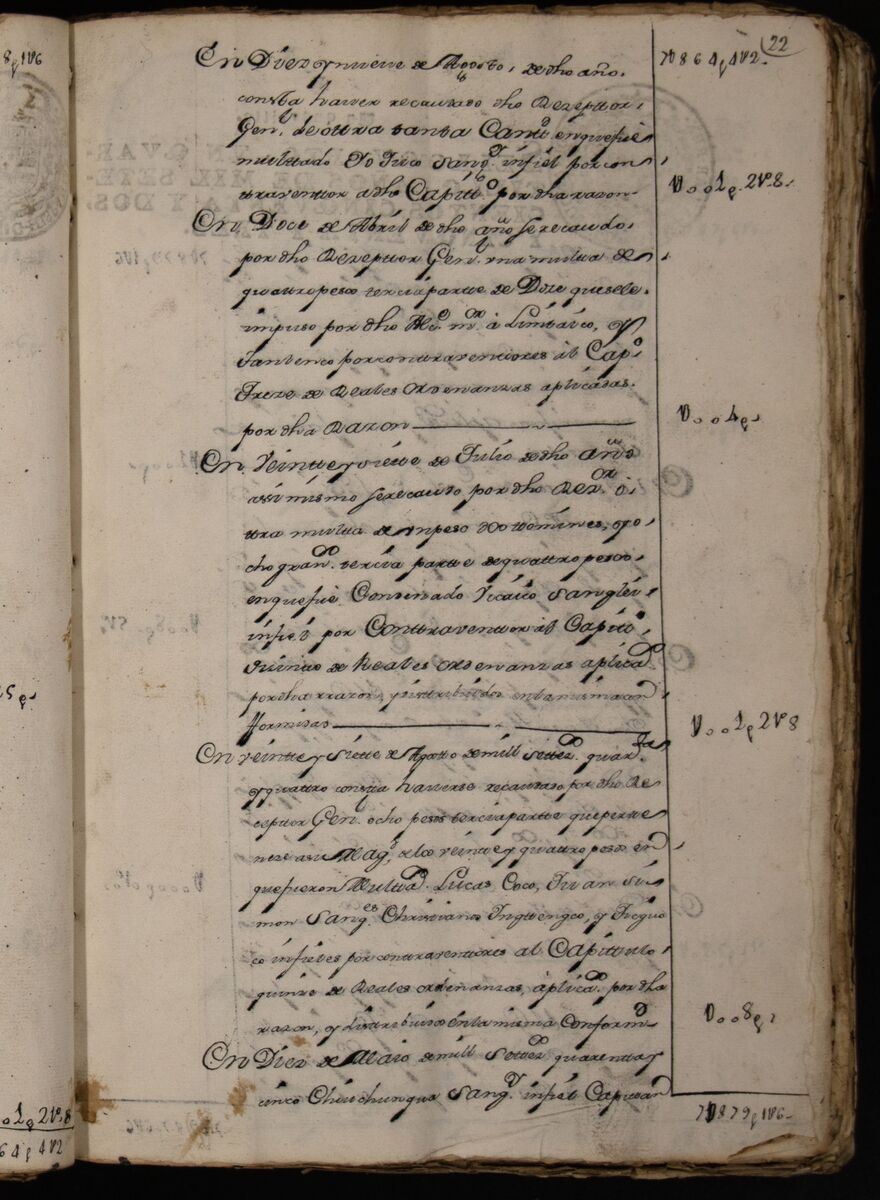 22
7U864p4t2
En Diez y nueve de Agosto, de dho año.
consta haver recaudado dho Rezeptor
Genl. de otra tanta Cantd. en que fue
multado Jo Juco Sangy. infiel por con
traventor a dho Capitto. por dha razon
U001p.2t8.
En Doce de Abril de dho año se recaudo
por dho Rezeptor Genl. vna multa de
quattro pesos tercia partte de Doze que se le
impuso por dho Alce. mor. à Limtaico, y
Tantenco por contraventores al Capo.
Treze de Reales Ordenanzas aplicadas.
por dha Razon
U004p.
En Veintte y siette de Julio de dho año
assimismo se recaudo por dho Rezor. o
tra multa de vn peso dos tomines, y o
cho grans. tercia partte de quattro pesos
en que fue Condenado Vicaico Sangley
infiel por Conttraventtor al Capitto.
quinze de Reales ordenanzas aplicada
por dha rrazon, y distribuidos en la misma con
formidad
U001p2t8
En veintte y Siette de Agosto de mill Settezs. quarta.
y quattro consta haverse recaudado por dho Re
ceptor Genl. ocho pesos tercia partte que perte
neze a su Magd. de los veintte y quattro pesos en
que fueron Multads. Lucas Coco, Juan Si
mon Sanges. Christianos Inquengco, y Tuquo
co infieles por contraventores al Capittulo
quinze de Reales ordenanzas, aplicads. por dha
razon, y distribuidos en la misma Conformd.
U008p
En Diez de Maio de mill Settezs. quarenta y
cinco Chiuchunqua Sangy. infiel Capitan
7U879p1t6